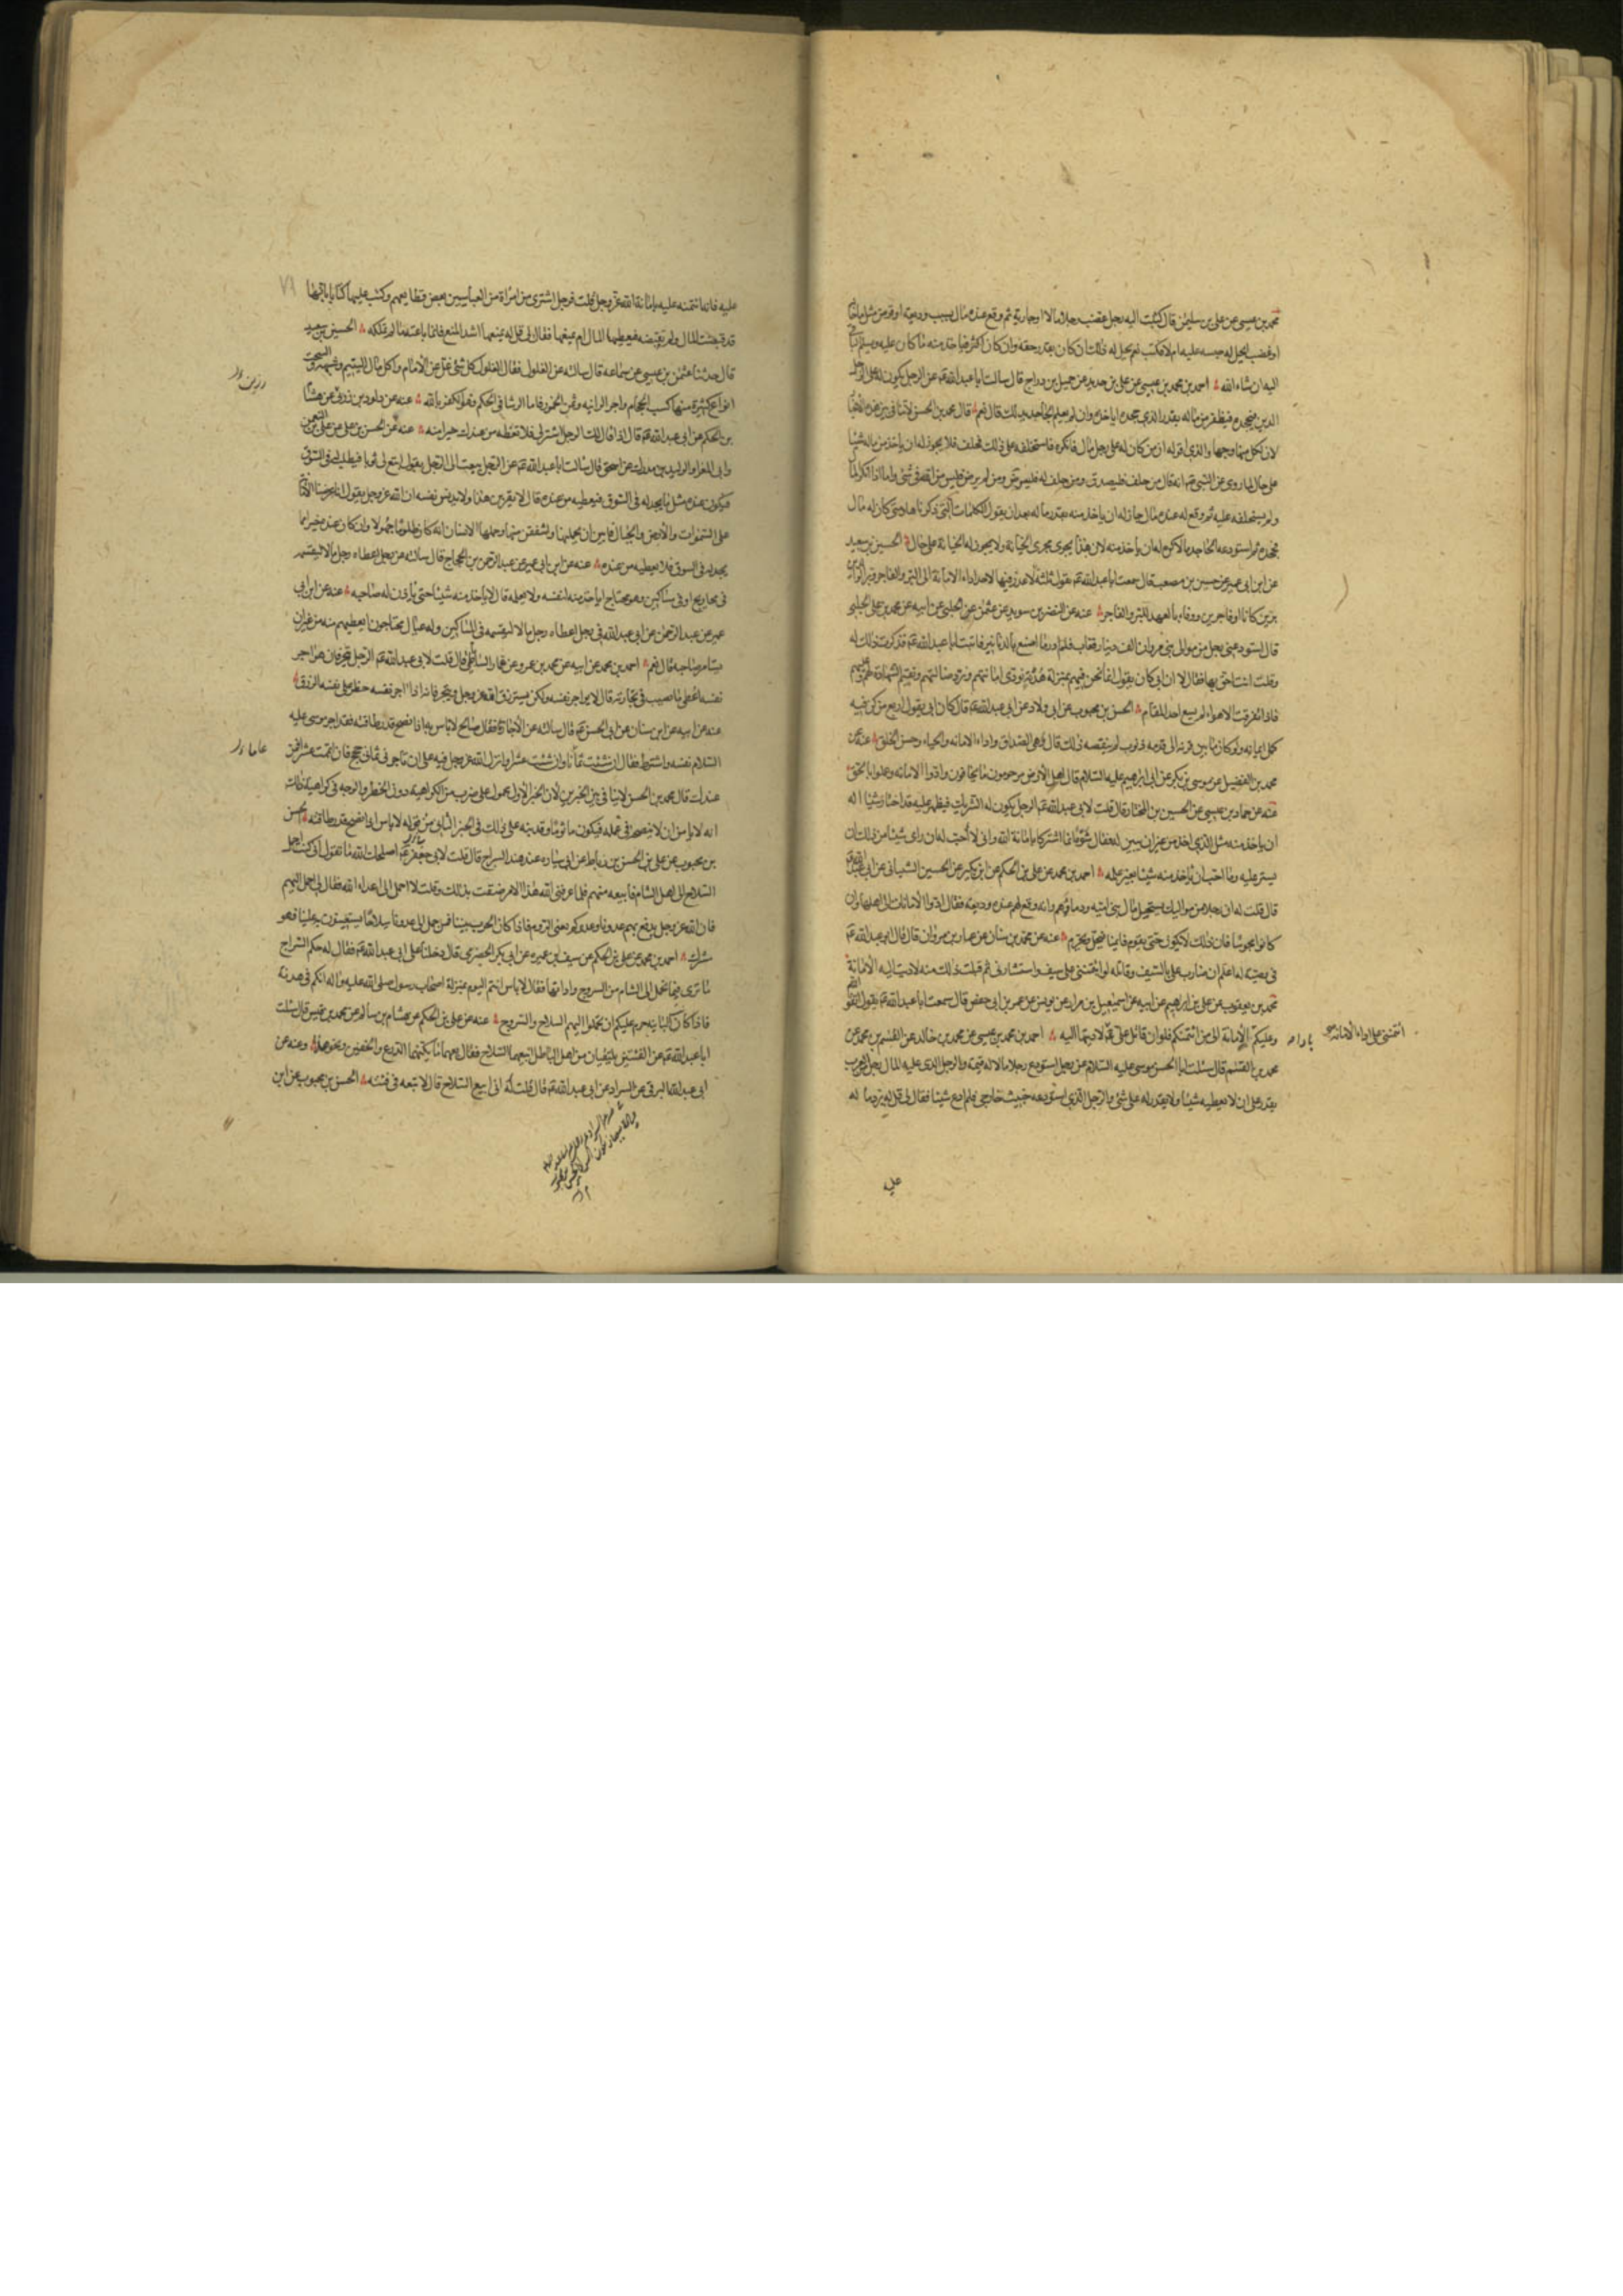 محمد بن عيسى عن علي بن سليمن قال كتبت اليه رجل غصب رجلا مالا او جارية ثم وقع عنده مال بسبب وديعة او قرض مثل ما خانه
او غصبه ايحل له حبسه عليه ام لا فكتب نعم يحل له ذلك ان كان بقدر حقه وان كان اكثر فياخذ منه ما كان عليه ويسلم الباقي
اليه ان شاء الله احمد بن محمد بن عيسى عن علي بن حديد عن جميل بن دراج قال سالت ابا عبد الله عن الرجل يكون له على الرجل
الدين فيجحده فيظفر من ماله بقدر الذي جحده اياخذه وان لم يعلم الجاحد بذلك قال نعم قال محمد بن الحسن لا تنافي بين هذه الاخبار
لان لكل منها وجها والذي اقوله ان من كان له على رجل مال فانكره فاستحلفه على ذلك فحلف فلا يجوز له ان ياخذ من ماله شيئا
على حال لما روي عن النبي انه قال من حلف فليصدق ومن حلف له فليرض ومن لم يرض فليس من الله في شئ واما اذا انكر المال
ولم يستحلفه عليه ثم وقع له عنده مال جاز له ان ياخذ منه بقدر ماله بعد ان يقول الكلمات التي ذكرناها ومتى كان له مال
فجحده ثم استودعه الجاحد مالا كره له ان ياخذ منه لان هذا يجري مجرى الخيانة ولا يجوز له الخيانة على حال الحسين بن سعيد
عن ابن ابي عمير عن حسين بن مصعب قال سمعت ابا عبد الله يقول ثلثة لا عذر فيها لاحد اداء الامانة الى البر والفاجر وبر الوالدين
برين كانا او فاجرين ووفاء بالعهد للبر والفاجر عنه عن النضر بن سويد عن عثمن عن الحلبي عن ابيه عن محمد بن علي الحلبي
قال استودعني رجل من موالي بني مروان الف دينار فغاب فلم ادر ما اصنع بالدنانير فاتيت ابا عبد الله فذكرت ذلك له
وقلت انت احق بها فقال لا ان ابي كان يقول انما نحن فيهم بمنزلة هدنة نودي امانتهم ونرد ضالتهم ونقيم الشهادة لهم وعليهم
فاذا تفرقت الاهواء لم يسع احد المقام الحسن بن محبوب عن ابي ولاد عن ابي عبد الله قال كان ابي يقول اربع من كن فيه
كمل ايمانه ولو كان ما بين قرنه الى قدمه ذنوب لم ينقصه ذلك قال هي الصدق واداء الامانة والحياء وحسن الخلق عنه عن
محمد بن الفضيل عن موسى بن بكر عن ابي ابراهيم عليه السلام قال اهل الارض مرحومون ما يخافون وادوا الامانة وعملوا بالحق
عنه عن حماد بن عيسى عن الحسين بن المختار قال قلت لابي عبد الله الرجل يكون له الشريك فيظهر عليه قد اختان شيئا اله
ان ياخذ منه مثل الذي اخذ من غير ان يبين له فقال شوه انما اشتركا بامانة الله واني لاحب له ان راى شيئا من ذلك ان
يستر عليه وما احب ان ياخذ منه شيئا بغير علمه احمد بن محمد عن علي بن الحكم عن ابن بكير عن الحسين الشيباني عن ابي عبد الله
قال قلت له ان رجلا من مواليك يستحل مال بني امية ودماءهم وانه وقع لهم عنده وديعة فقال ادوا الامانات الى اهلها وان
كانوا مجوسا فان ذلك لا يكون حتى يقوم قايمنا فيحل ويحرم عنه عن محمد بن سنان عن عمار بن مروان قال قال ابو عبد الله
في وصيته له اعلم ان ضارب علي بالسيف وقاتله لو ائتمنني على سيف واستشارني ثم قبلت ذلك منه لاديت اليه الامانة
محمد بن يعقوب عن علي بن ابراهيم عن ابيه عن اسمعيل بن مرار عن يونس عن عمر بن ابي حفص قال سمعت ابا عبد الله يقول اتقوا الله
وعليكم الامانة الى من ائتمنكم فلو ان قاتل علي لاديتها اليه احمد بن محمد بن عيسى عن محمد بن خالد عن القسم بن محمد عن
ائتمنني على اداء الامانة
محمد بن القسم قال سئلت ابا الحسن موسى عليه السلام عن رجل استودع رجلا مالا له قيمة والرجل الذي عليه المال رجل من العرب
يقدر على ان لا يعطيه شيئا ولا يقدر له على شئ والرجل الذي استودعه خبيث خارجي فلم ادع شيئا فقال لي قل له يرد ماله
عليه
٧٩
عليه فانه ائتمنه عليه بامانة الله عز وجل قلت فرجل اشترى من امراة من العباسيين بعض قطايعهم وكتب عليها كتابا بانها
قد قبضت المال ولم تقبضه فيعطيها المال ام يمنعها فقال لي قل له يمنعها اشد المنع فانما باعته ما لم تملكه الحسين بن سعيد
قال حدثنا عثمن بن عيسى عن سماعة قال سالته عن الغلول فقال الغلول كل شئ غل عن الامام واكل مال اليتيم وشبهه والسحت
انواع كثيرة منها كسب الحجام واجر الزانية وثمن الخمر فاما الرشا في الحكم فهو الكفر بالله عنه عن داود بن رزين عن هشام
بن الحكم عن ابي عبد الله قال اذا قال لك الرجل اشتر لي فلا تعطه من عندك خيرا منه عنه عن الحسن بن علي عن علي بن النعمن
وابي المغرا والوليد بن مدرك عن اسحق قال سالت ابا عبد الله عن الرجل يبعث الى الرجل يقول ابتع لي ثوبا فيطلب له في السوق
فيكون عنده مثل ما يجد له في السوق فيعطيه من عنده قال لا يقربن هذا ولا يدنس نفسه ان الله عز وجل يقول انا عرضنا الامانة
على السموات والارض والجبال فابين ان يحملنها واشفقن منها وحملها الانسان انه كان ظلوما جهولا وان كان عنده خيرا مما
يجد له في السوق فلا يعطيه من عنده عنه عن ابن ابي عمير عن عبد الرحمن بن الحجاج قال سالته عن رجل اعطاه رجل مالا ليقسمه
في محاويج او في مساكين وهو محتاج اياخذ منه لنفسه ولا يعلمه قال لا ياخذ منه شيئا حتى ياذن له صاحبه عنه عن ابن ابي
عمير عن عبد الرحمن عن ابي عبد الله في رجل اعطاه رجل مالا ليقسمه في المساكين وله عيال محتاجون ايعطيهم منه من غير ان
يستامر صاحبه قال نعم احمد بن محمد عن ابيه عن محمد بن عمرو عن عمار الساباطي قال قلت لابي عبد الله الرجل يتجر فان هو اجر
نفسه اعطي ما يصيب في تجارته قال لا يواجر نفسه ولكن يسترزق الله عز وجل ويتجر فانه اذا اجر نفسه حظر على نفسه الرزق
عنه عن ابيه عن ابن سنان عن ابي الحسن قال سالته عن الاجارة فقال صالح لا باس به اذا نصح قدر طاقته فقد اجر موسى عليه
السلام نفسه واشترط فقال ان شئت ثمانا وان شئت عشرا وانزل الله عز وجل فيه على ان تاجرني ثماني حجج فان اتممت عشرا فمن
عندك قال محمد بن الحسن لا تنافي بين الخبرين لان الخبر الاول محمول على ضرب من الكراهية دون الحظر والوجه في كراهية ذلك
انه لا يامن ان لا ينصحه في عمله فيكون ماثوما وقد نبه على ذلك في الخبر الثاني من قوله لا باس اذا نصح قدر طاقته الحسن
بن محبوب عن علي بن الحسن بن رباط عن ابي سارة عن هند السراج قال قلت لابي جعفر اصلحك الله ما تقول اني كنت احمل
السلاح الى اهل الشام فابيعه منهم فلما عرفني الله هذا الامر ضقت بذلك وقلت لا احمل الى اعداء الله فقال لي احمل اليهم
فان الله عز وجل يدفع بهم عدونا وعدوكم يعني الروم فاذا كان الحرب بيننا فمن حمل الى عدونا سلاحا يستعينون به علينا فهو
مشرك احمد بن محمد عن علي بن الحكم عن سيف بن عميرة عن ابي بكر الحضرمي قال دخلنا على ابي عبد الله فقال له حكم السراج
ما ترى فيما يحمل الى الشام من السروج واداتها فقال لا باس انتم اليوم بمنزلة اصحاب رسول الله صلى الله عليه واله انكم في هدنة
فاذا كانت المباينة حرم عليكم ان تحملوا اليهم السلاح والسروج عنه عن علي بن الحكم عن هشام بن سالم عن محمد بن قيس قال سئلت
ابا عبد الله عن الفئتين يلتقيان من اهل الباطل ابيعهما السلاح فقال بعهما ما يكنهما الدرع والخفين ونحو هذا وعنه عن
ابي عبد الله البرقي عن السراد عن ابي عبد الله قال قلت له اني ابيع السلاح قال لا تبعه في فتنة الحسن بن محبوب عن ابن